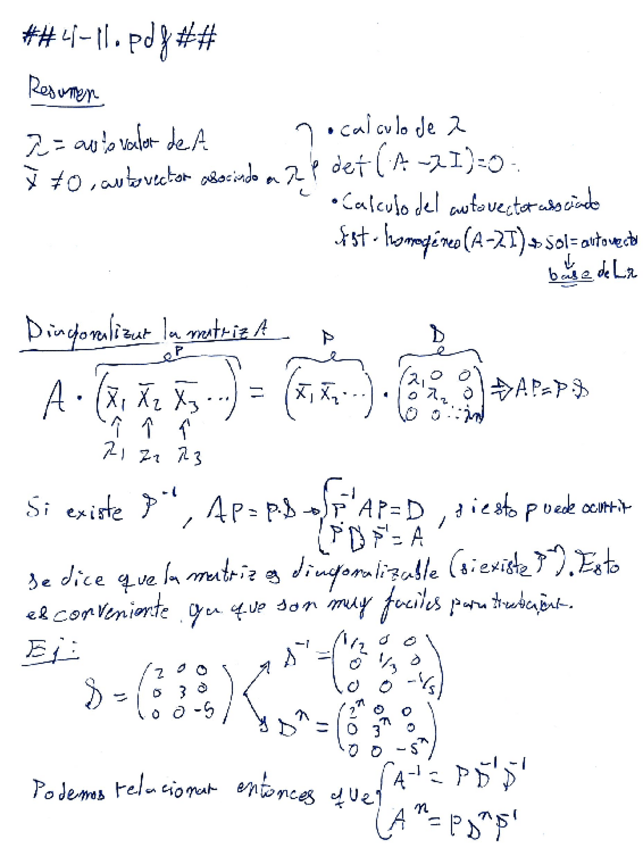 ##4-11.pdf##
Resumen
λ = autovalor de A
x̄ ≠ 0, autovector asociado a λ
• calculo de λ
det(A - λI)=0
• Calculo del autovector asociado
Sist. homogéneo (A-λI) → sol = autovecto
↓
base de Lλ
Diagonalizar la matriz A
P P D
A · (x̄₁ x̄₂ x̄₃ ...) = (x̄₁ x̄₂ ...) · (λ₁ 0 0 / 0 λ₂ 0 / 0 0 ⋱ λn) ⇒ AP=P·D
↑ ↑ ↑
λ₁ λ₂ λ₃
Si existe P⁻¹, AP = P·D → { P⁻¹AP = D, si esto puede ocurrir
P D P⁻¹ = A
se dice que la matriz es diagonalizable (si existe P⁻¹). Esto
es conveniente ya que son muy faciles para trabajar.
Ej:
D = (2 0 0 / 0 3 0 / 0 0 -5)
D⁻¹ = (1/2 0 0 / 0 1/3 0 / 0 0 -1/5)
Dⁿ = (2ⁿ 0 0 / 0 3ⁿ 0 / 0 0 -5ⁿ)
Podemos relacionar entonces que { A⁻¹ = P D⁻¹ D⁻¹
Aⁿ = P Dⁿ P⁻¹